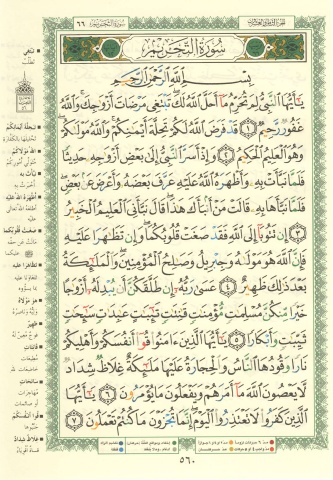 سُورَةُ التَّحْرِيمِ
٦٦
سُورَةُ التَّحْرِيمِ
بِسْمِ اللَّهِ الرَّحْمَٰنِ الرَّحِيمِ
يَٰٓأَيُّهَا ٱلنَّبِيُّ لِمَ تُحَرِّمُ مَآ أَحَلَّ ٱللَّهُ لَكَ تَبْتَغِي مَرْضَاتَ أَزْوَٰجِكَ وَٱللَّهُ
غَفُورٌ رَّحِيمٌ ١ قَدْ فَرَضَ ٱللَّهُ لَكُمْ تَحِلَّةَ أَيْمَٰنِكُمْ وَٱللَّهُ مَوْلَىٰكُمْ
وَهُوَ ٱلْعَلِيمُ ٱلْحَكِيمُ ٢ وَإِذْ أَسَرَّ ٱلنَّبِيُّ إِلَىٰ بَعْضِ أَزْوَٰجِهِۦ حَدِيثًا
فَلَمَّا نَبَّأَتْ بِهِۦ وَأَظْهَرَهُ ٱللَّهُ عَلَيْهِ عَرَّفَ بَعْضَهُۥ وَأَعْرَضَ عَنۢ بَعْضٍ
فَلَمَّا نَبَّأَهَا بِهِۦ قَالَتْ مَنْ أَنۢبَأَكَ هَٰذَا قَالَ نَبَّأَنِيَ ٱلْعَلِيمُ ٱلْخَبِيرُ
٣ إِن تَتُوبَآ إِلَى ٱللَّهِ فَقَدْ صَغَتْ قُلُوبُكُمَا وَإِن تَظَٰهَرَا عَلَيْهِ
فَإِنَّ ٱللَّهَ هُوَ مَوْلَىٰهُ وَجِبْرِيلُ وَصَٰلِحُ ٱلْمُؤْمِنِينَ وَٱلْمَلَٰٓئِكَةُ
بَعْدَ ذَٰلِكَ ظَهِيرٌ ٤ عَسَىٰ رَبُّهُۥٓ إِن طَلَّقَكُنَّ أَن يُبْدِلَهُۥٓ أَزْوَٰجًا
خَيْرًا مِّنكُنَّ مُسْلِمَٰتٍ مُّؤْمِنَٰتٍ قَٰنِتَٰتٍ تَٰٓئِبَٰتٍ عَٰبِدَٰتٍ سَٰٓئِحَٰتٍ
ثَيِّبَٰتٍ وَأَبْكَارًا ٥ يَٰٓأَيُّهَا ٱلَّذِينَ ءَامَنُوا۟ قُوٓا۟ أَنفُسَكُمْ وَأَهْلِيكُمْ
نَارًا وَقُودُهَا ٱلنَّاسُ وَٱلْحِجَارَةُ عَلَيْهَا مَلَٰٓئِكَةٌ غِلَاظٌ شِدَادٌ
لَّا يَعْصُونَ ٱللَّهَ مَآ أَمَرَهُمْ وَيَفْعَلُونَ مَا يُؤْمَرُونَ ٦ يَٰٓأَيُّهَا
ٱلَّذِينَ كَفَرُوا۟ لَا تَعْتَذِرُوا۟ ٱلْيَوْمَ إِنَّمَا تُجْزَوْنَ مَا كُنتُمْ تَعْمَلُونَ ٧
٥٦٠